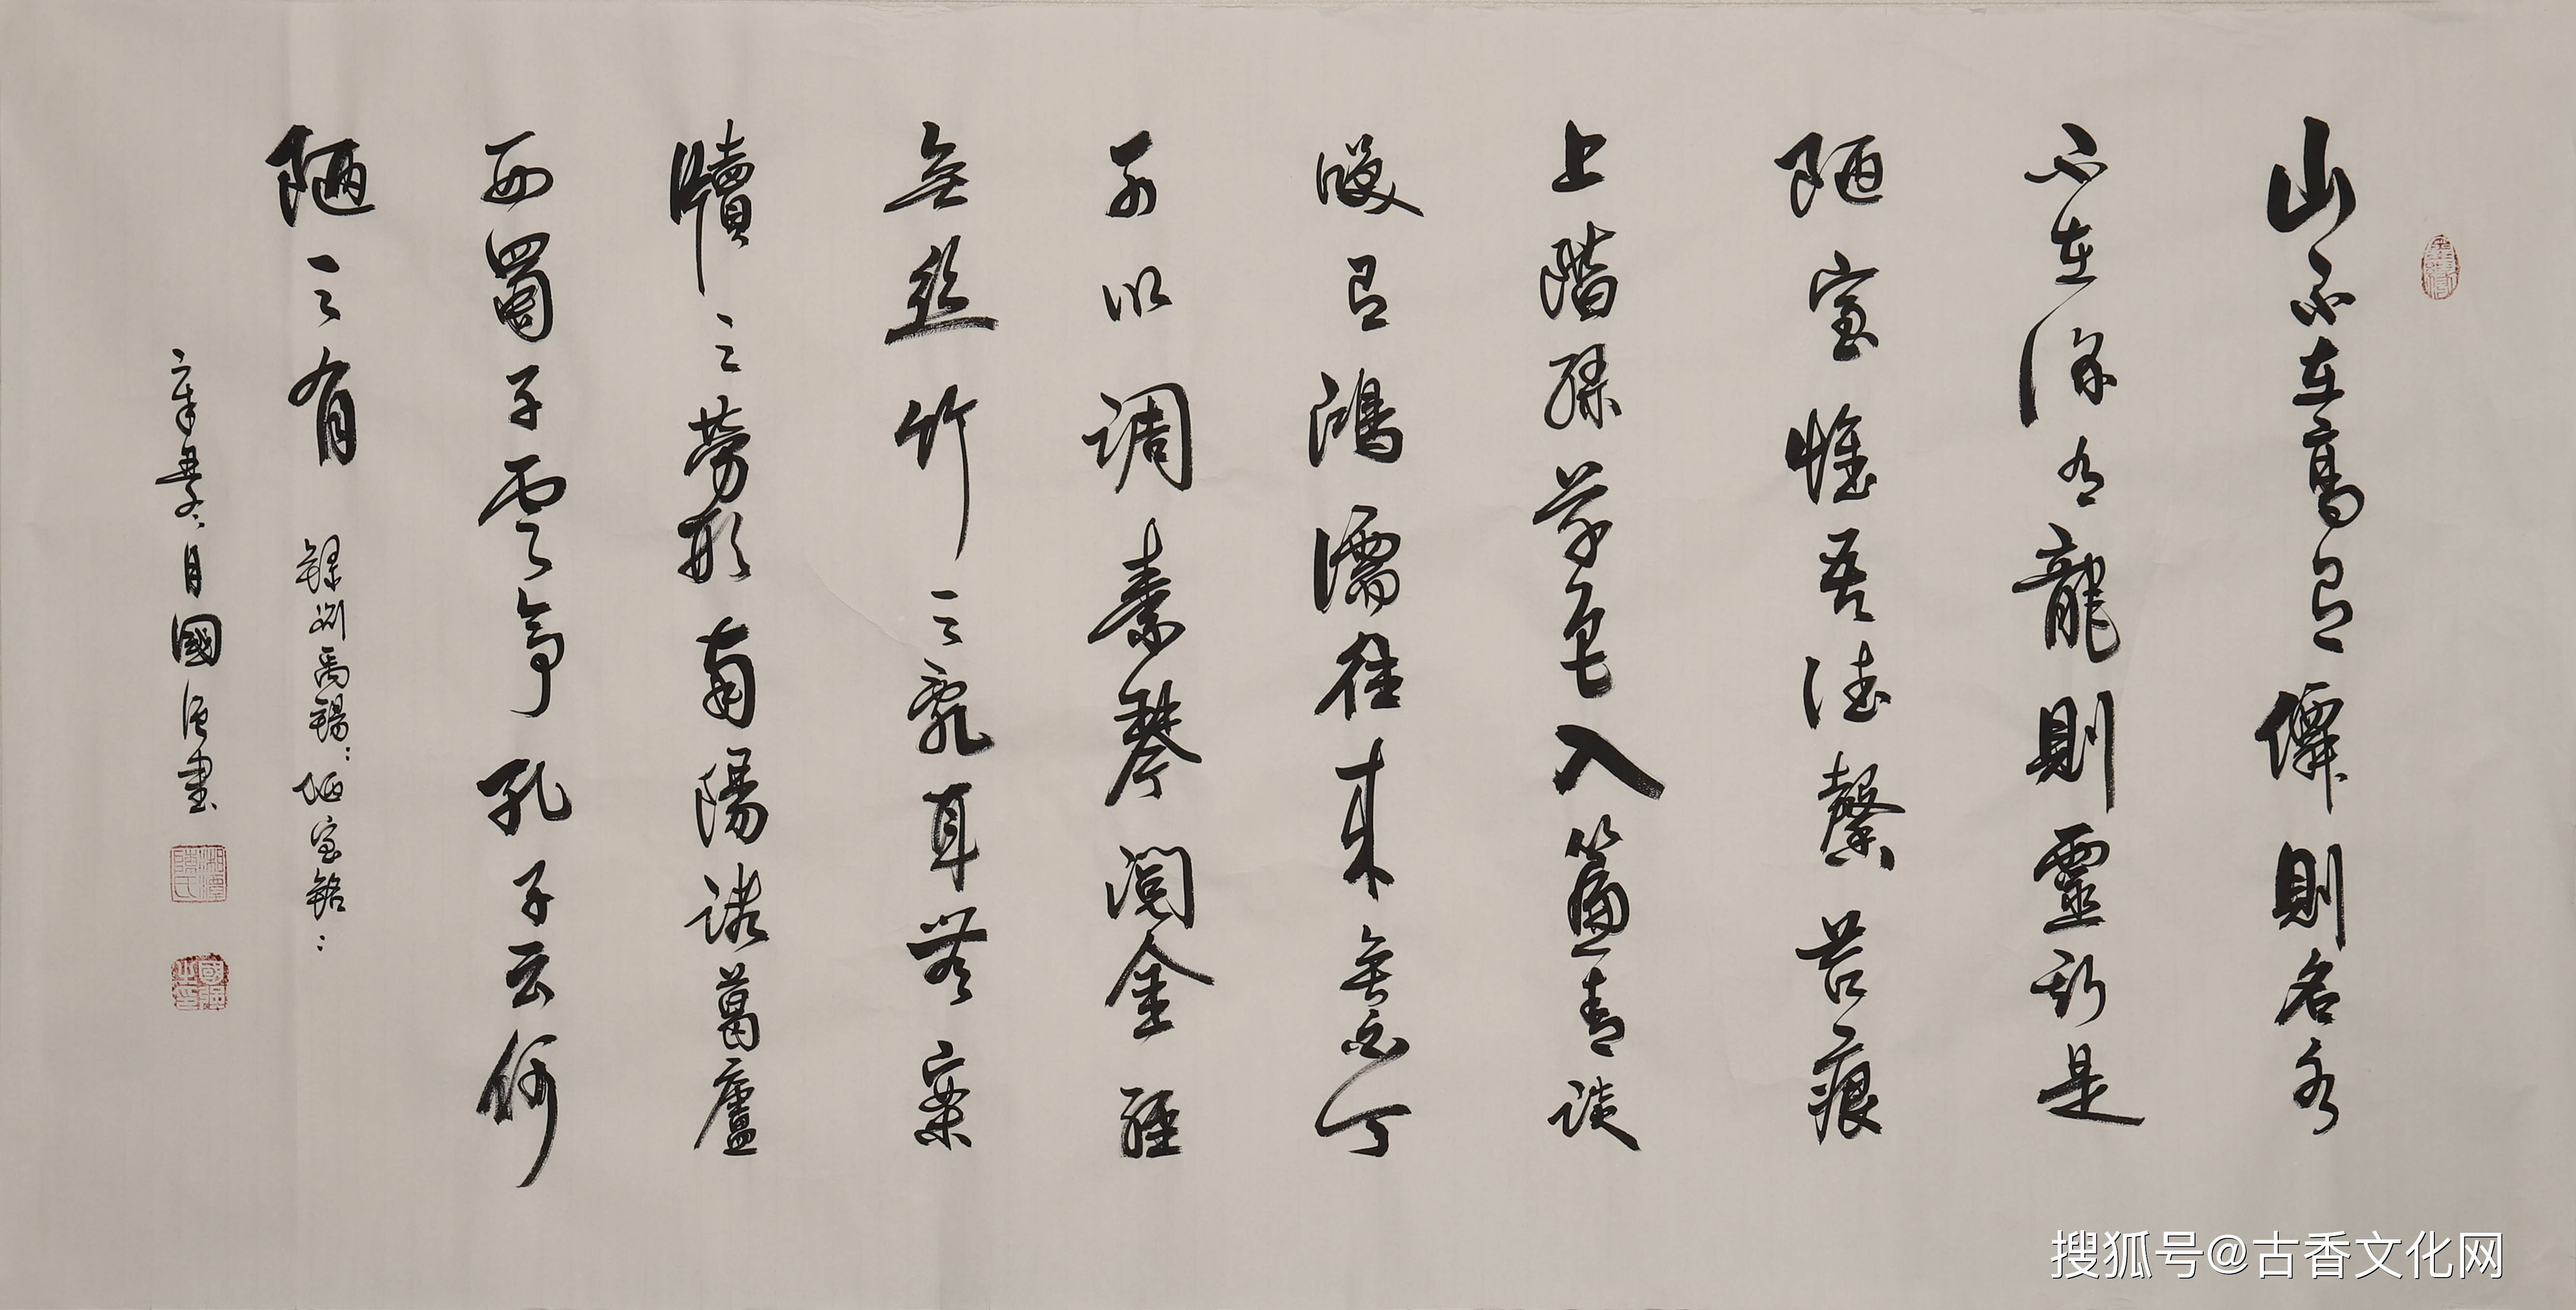 山不在高有僊則名水
不在深有龍則靈斯是
陋室惟吾德馨苔痕
上階綠草色入簾青談
咲有鴻儒往來無白丁
可以調素琴閱金經
無絲竹之亂耳無案
牘之勞形南陽諸葛廬
西蜀子雲亭孔子云何
陋之有
錄劉禹錫：陋室銘：
辛丑冬月國強書
國強之印
搜狐号@古香文化网